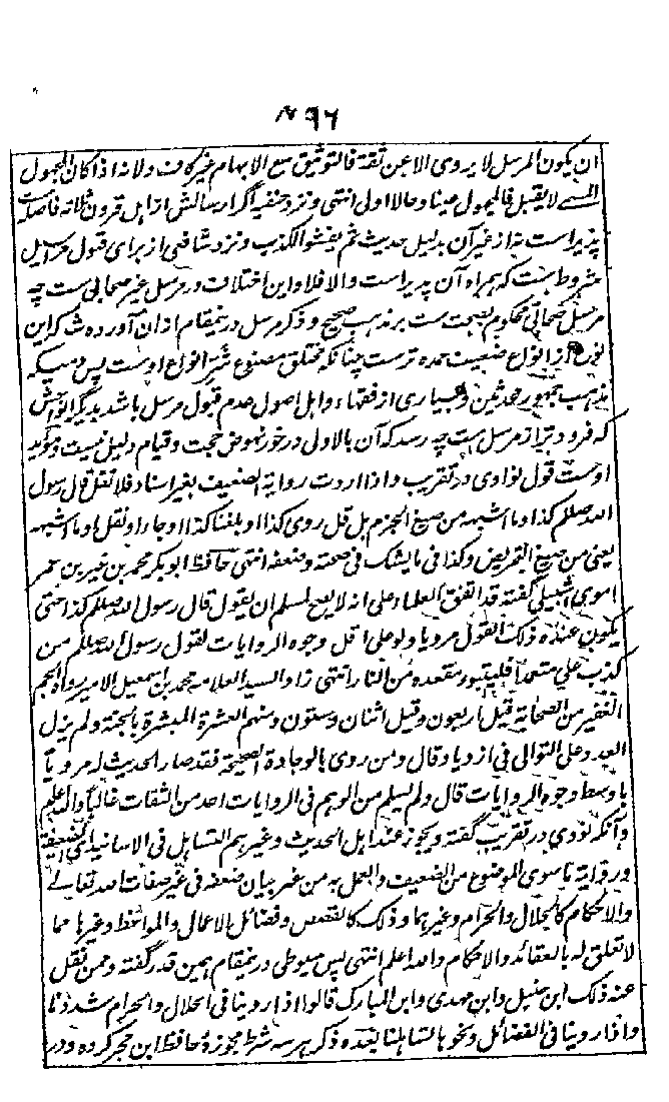 ٩٦
ان یکون المرسل لا یروی الا عن ثقة فالتوثیق مع الابهام غیر کاف ولانه اذا کان المجهول
المسمی لا یقبل فالمجهول عینا وحالا اولی انتهی ونزد حنفیه اگر ارسالش از اهل قرون ثلاثه فاضله است
پذیراست نه از غیر آن بدلیل حدیث ثم یفشو الکذب ونزد شافعی از برای قبول مراسیل
شروط است که همراه آن پذیراست والا فلا واین اختلاف در مرسل غیر صحابی ست چه
مرسل صحابی محکوم بصحت ست بر مذهب صحیح وذکر مرسل درینمقام ازان آورده شد که این
نوع از انواع ضعیف عمده ترست چنانکه مختلق مصنوع شر انواع اوست پس هرگاه که
مذهب جمهور محدثین وبسیاری از فقهاء واهل اصول عدم قبول مرسل باشد بدیگر انواعش
که فروتر از مرسل ست چه رسد که آن بالاولی درخور نهوض حجت وقیام دلیل نیست ومؤید
اوست قول نواوی در تقریب واذا اردت روایة الضعیف بغیر اسناد فلا تقل قال رسول
الله صللم کذا وما اشبهه من صیغ الجزم بل قل روی کذا او بلغنا کذا او جاء او نقل او ما اشبهه
یعنی من صیغ التمریض وکذا فی ما یشک فی صحته وضعفه انتهی حافظ ابوبکر محمد بن خیر بن عمر
اموی اشبیلی گفته قد اتفق العلماء علی انه لا یصح لمسلم ان یقول قال رسول الله صللم کذا حتی
یکون عنده ذلک القول مرویا ولو علی اقل وجوه الروایات لقول رسول الله صللم من
کذب علی متعمدا فلیتبوء مقعده من النار انتهی زاد السید العلامه محمد بن اسمعیل الامیر رواه الجم
الغفیر من الصحابة قیل اربعون وقیل اثنان وستون ومنهم العشرة المبشرة بالجنة ولم یزل
العدد علی التوالی فی ازدیاد وقال ومن روی بالوجادة الصحیحة فقد صار الحدیث له مرویا
باوسط وجوه الروایات قال ولم یسلم من الوهم فی الروایات احد من الثقات غالبا والله اعلم
وآنکه نووی در تقریب گفته ویجوز عند اهل الحدیث وغیرهم التساهل فی الاسانید الضعیفة
وروایة ما سوی الموضوع من الضعیف والعمل به من غیر بیان ضعفه فی غیر صفات الله تعالی
والاحکام کالحلال والحرام وغیرهما وذلک کالقصص وفضائل الاعمال والمواعظ وغیرها مما
لا تعلق له بالعقائد والاحکام والله اعلم انتهی پس سیوطی درینمقام همین قدر گفته وممن نقل
عنه ذلک ابن حنبل وابن مهدی وابن المبارک قالوا اذا روینا فی الحلال والحرام شددنا
واذا روینا فی الفضائل ونحوها تساهلنا بعده ذکر هر سه شرط مجوزۀ حافظ ابن حجر کرده ودر